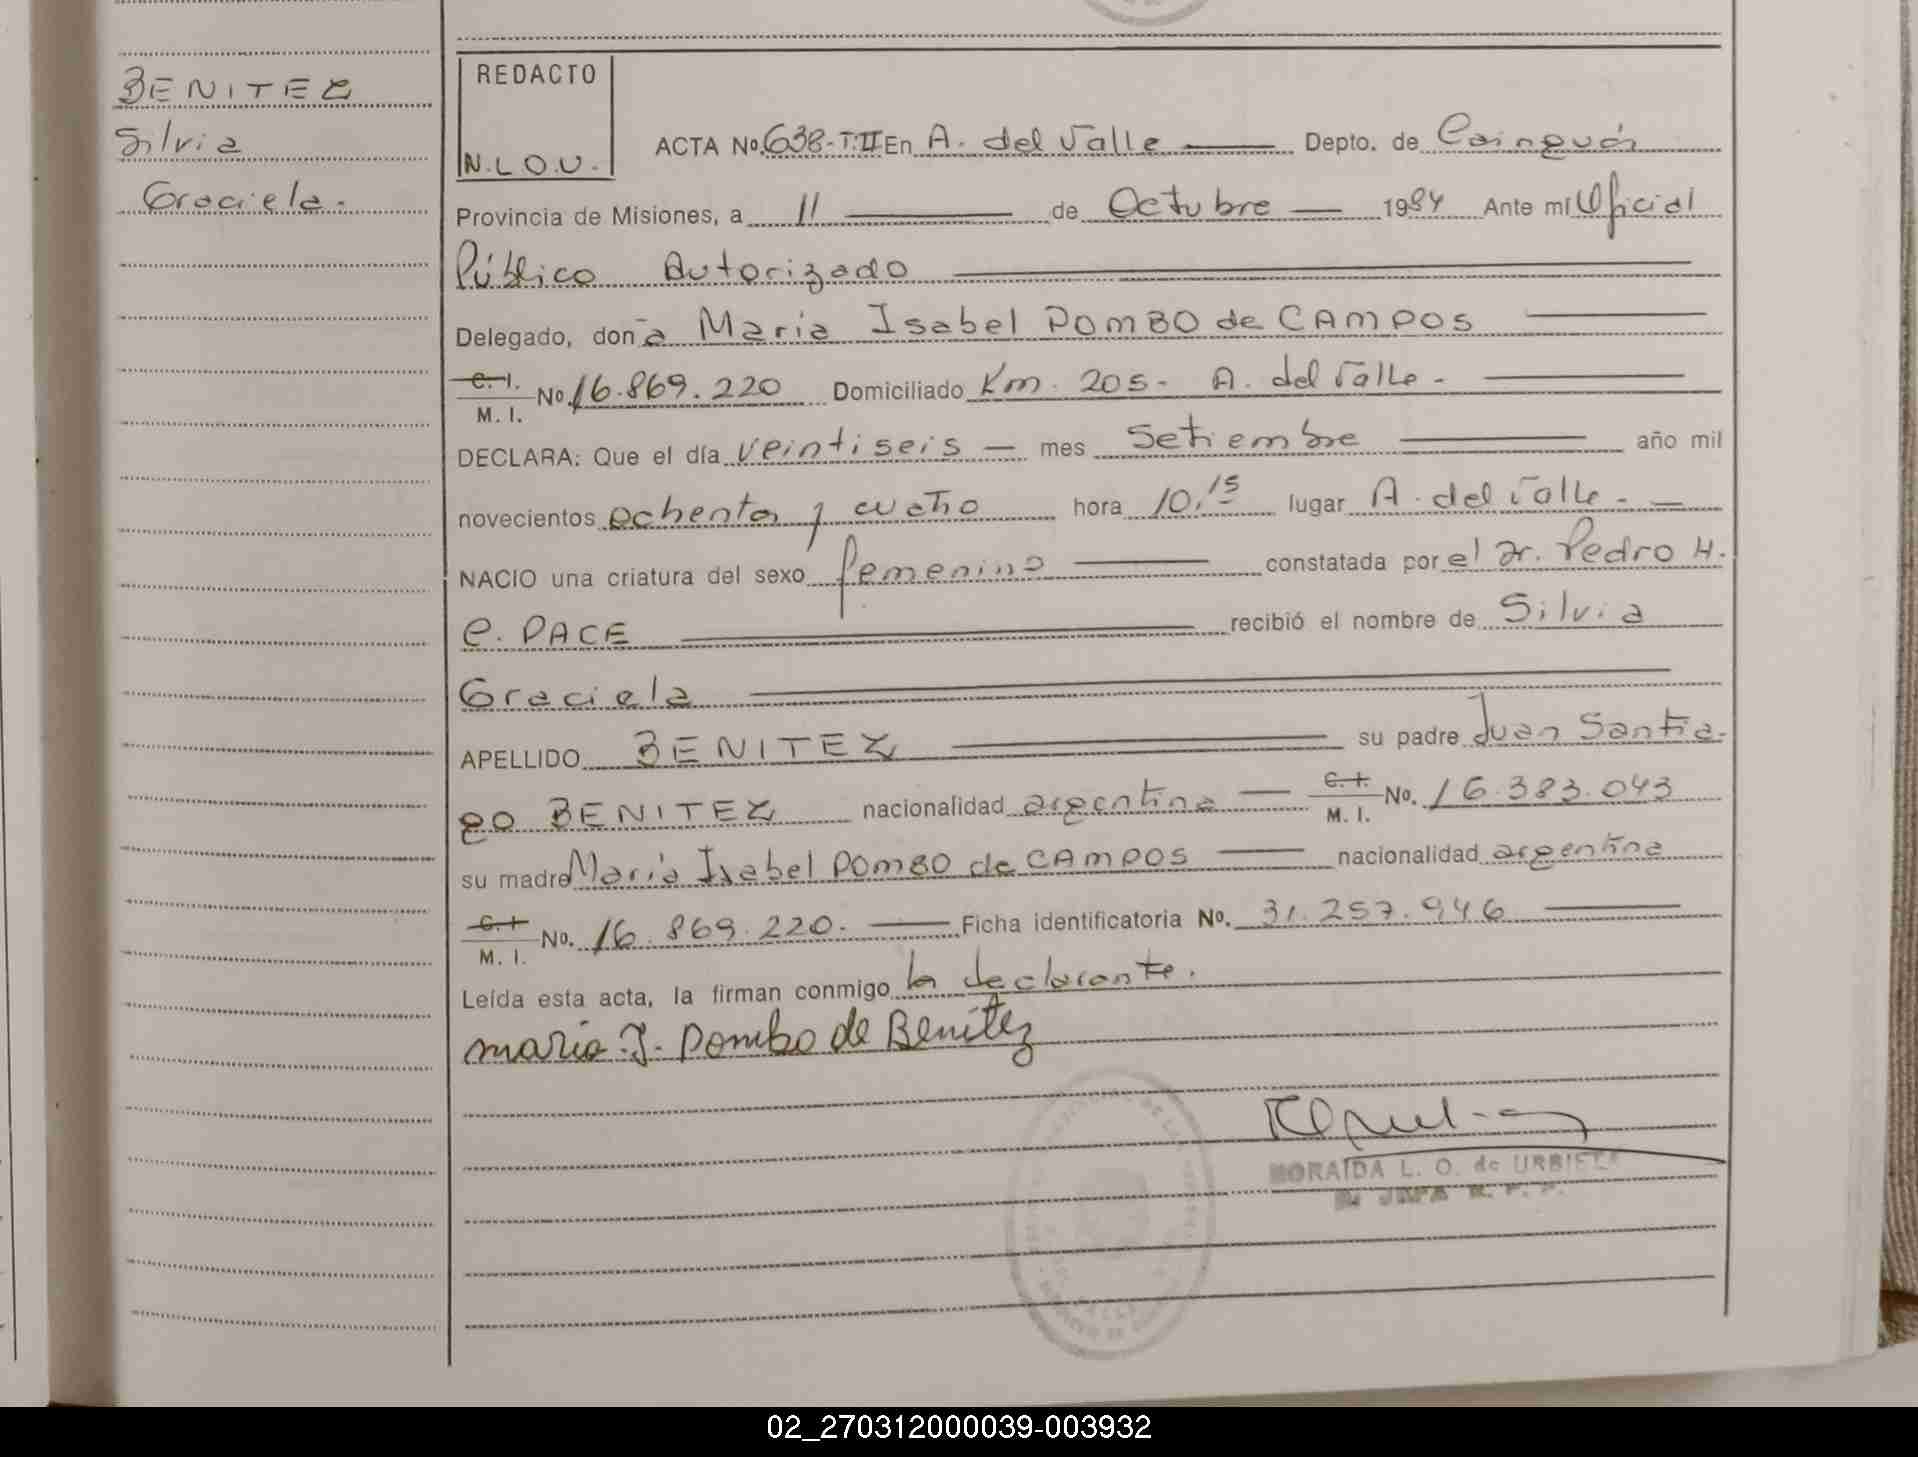 BENITEZ
Silvia
Graciela.
REDACTO
N.L.O.U.
ACTA No. 638-T:II En A. del Valle Depto. de Cainguás
Provincia de Misiones, a 11 de Octubre 1984 Ante mi Oficial
Público Autorizado
Delegado, don̄a Maria Isabel POMBO de CAMPOS
C. I.
M. I.
No. 16.869.220 Domiciliado Km. 205- A. del Valle.-
DECLARA: Que el día veintiseis — mes Setiembre año mil
novecientos ochenta y cuatro hora 10,15 lugar A. del Valle.-
NACIO una criatura del sexo femenino constatada por el Dr. Pedro H.
C. PACE recibió el nombre de Silvia
Graciela
APELLIDO BENITEZ su padre Juan Santia-
go BENITEZ nacionalidad argentina — C. I.
M. I.
No. 16.383.043
su madre Maria Isabel POMBO de CAMPOS nacionalidad argentina
C. I.
M. I.
No. 16.869.220. Ficha identificatoria No. 31.257.946
Leída esta acta, la firman conmigo la declarante.
maria I. Pombo de Benítez
MORAIDA L. O. de URBIETA
02_270312000039-003932